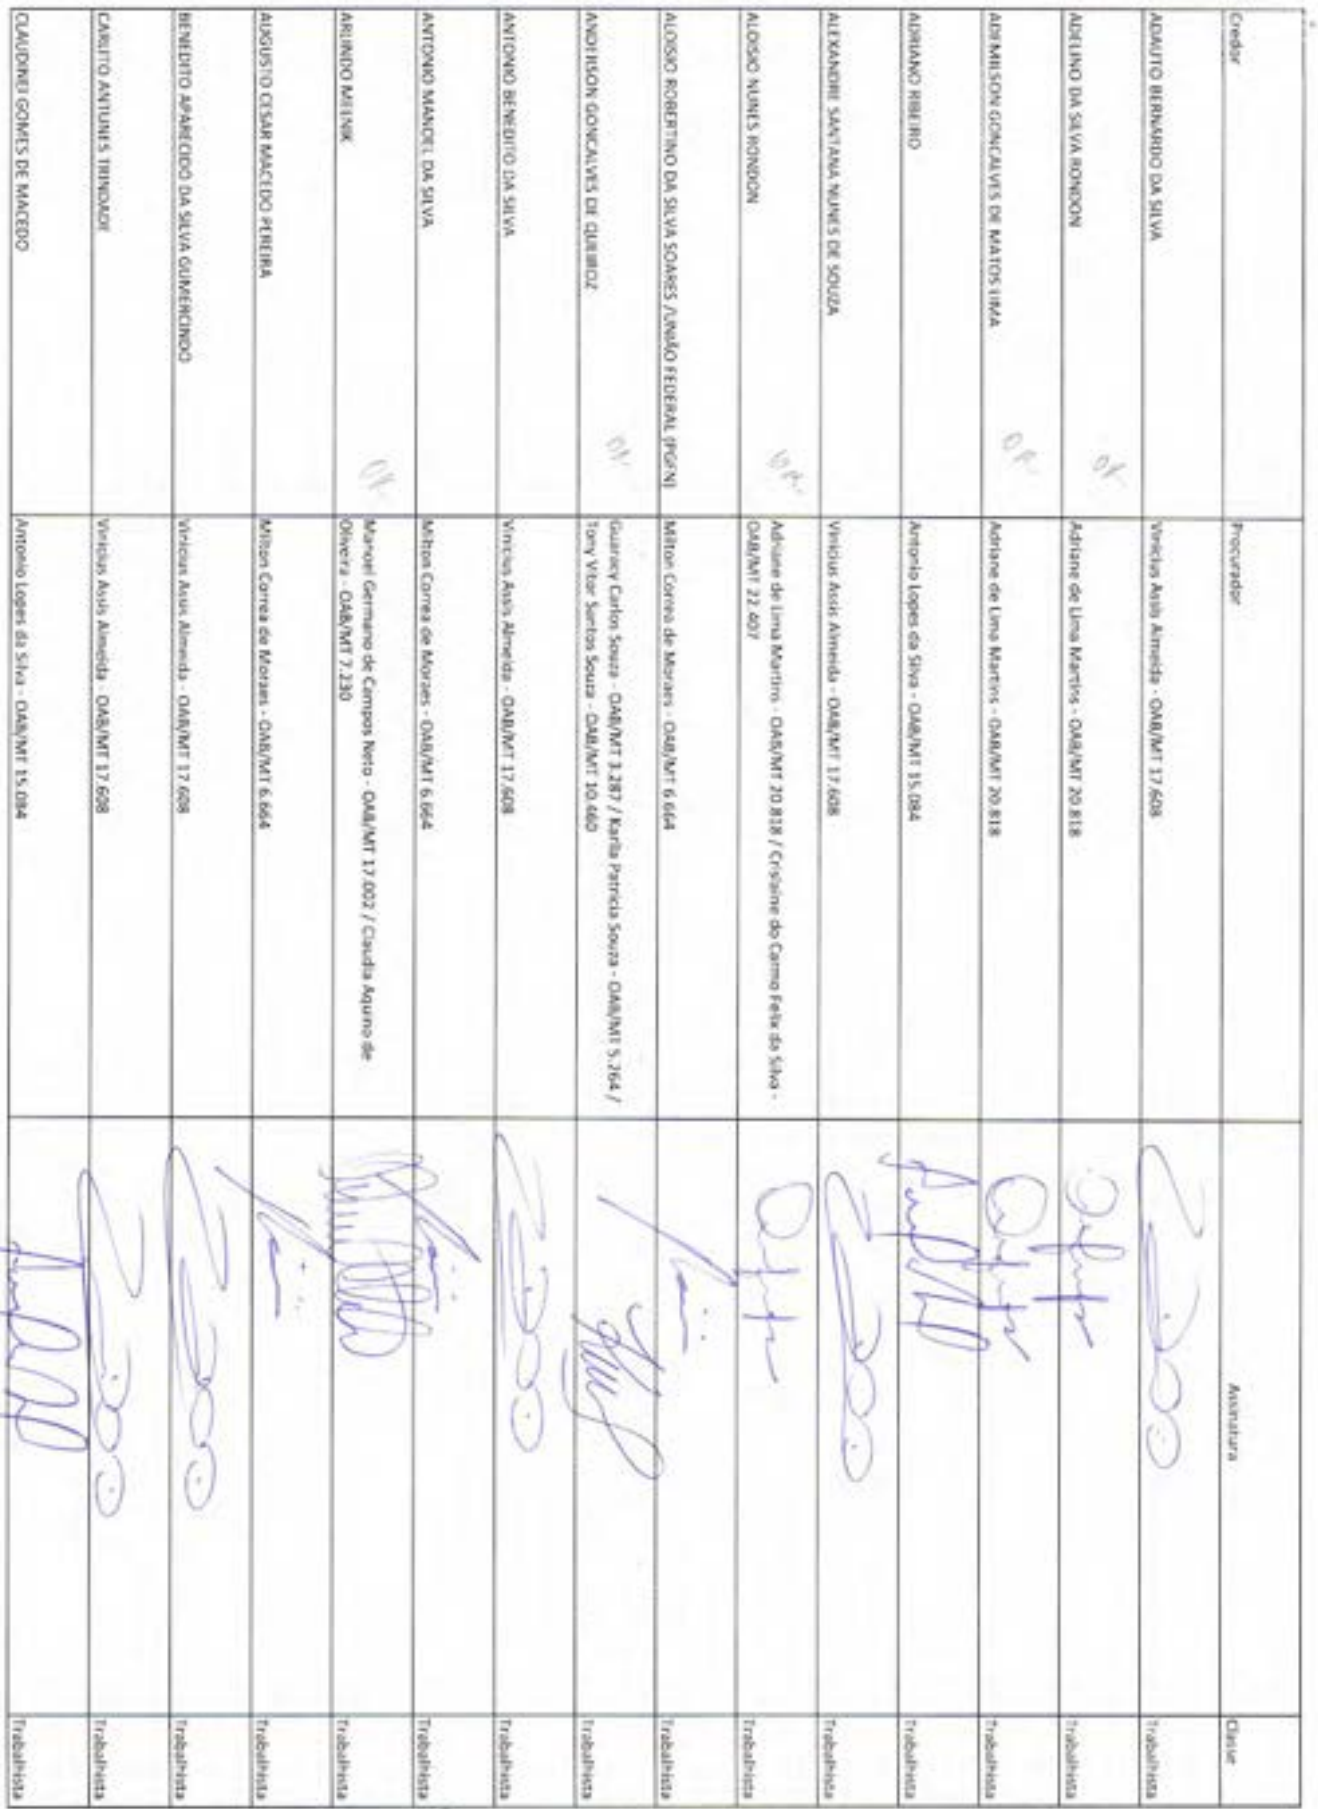 Credor Procurador Assinatura Classe
ADAUTO BERNARDO DA SILVA Vinicius Assis Almeida - OAB/MT 17.608 Trabalhista
ADELINO DA SILVA RONDON OK Adriane de Lima Martins - OAB/MT 20.818 Trabalhista
ADEMILSON GONCALVES DE MATOS LIMA OK Adriane de Lima Martins - OAB/MT 20.818 Trabalhista
ADRIANO RIBEIRO Antonio Lopes da Silva - OAB/MT 15.084 Trabalhista
ALEXANDRE SANTANA NUNES DE SOUZA Vinicius Assis Almeida - OAB/MT 17.608 Trabalhista
ALOISIO NUNES RONDON OK Adriane de Lima Martins - OAB/MT 20.818 / Crislaine do Carmo Felix da Silva -
OAB/MT 22.407 Trabalhista
ALOISIO ROBERTINO DA SILVA SOARES /UNIÃO FEDERAL (PGFN) Milton Correa de Moraes - OAB/MT 6.664 Trabalhista
ANDERSON GONCALVES DE QUEIROZ OK Guaracy Carlos Souza - OAB/MT 3.287 / Karlla Patricia Souza - OAB/MT 5.264 /
Tony Vitor Santos Souza - OAB/MT 10.460 Trabalhista
ANTONIO BENEDITO DA SILVA Vinicius Assis Almeida - OAB/MT 17.608 Trabalhista
ANTONIO MANOEL DA SILVA Milton Correa de Moraes - OAB/MT 6.664 Trabalhista
ARLINDO MELNIK OK Manoel Germano de Campos Neto - OAB/MT 17.002 / Claudia Aquino de
Oliveira - OAB/MT 7.230 Trabalhista
AUGUSTO CESAR MACEDO PEREIRA Milton Correa de Moraes - OAB/MT 6.664 Trabalhista
BENEDITO APARECIDO DA SILVA GUMERCINDO Vinicius Assis Almeida - OAB/MT 17.608 Trabalhista
CARLITO ANTUNES TRINDADE Vinicius Assis Almeida - OAB/MT 17.608 Trabalhista
CLAUDINEI GOMES DE MACEDO Antonio Lopes da Silva - OAB/MT 15.084 Trabalhista